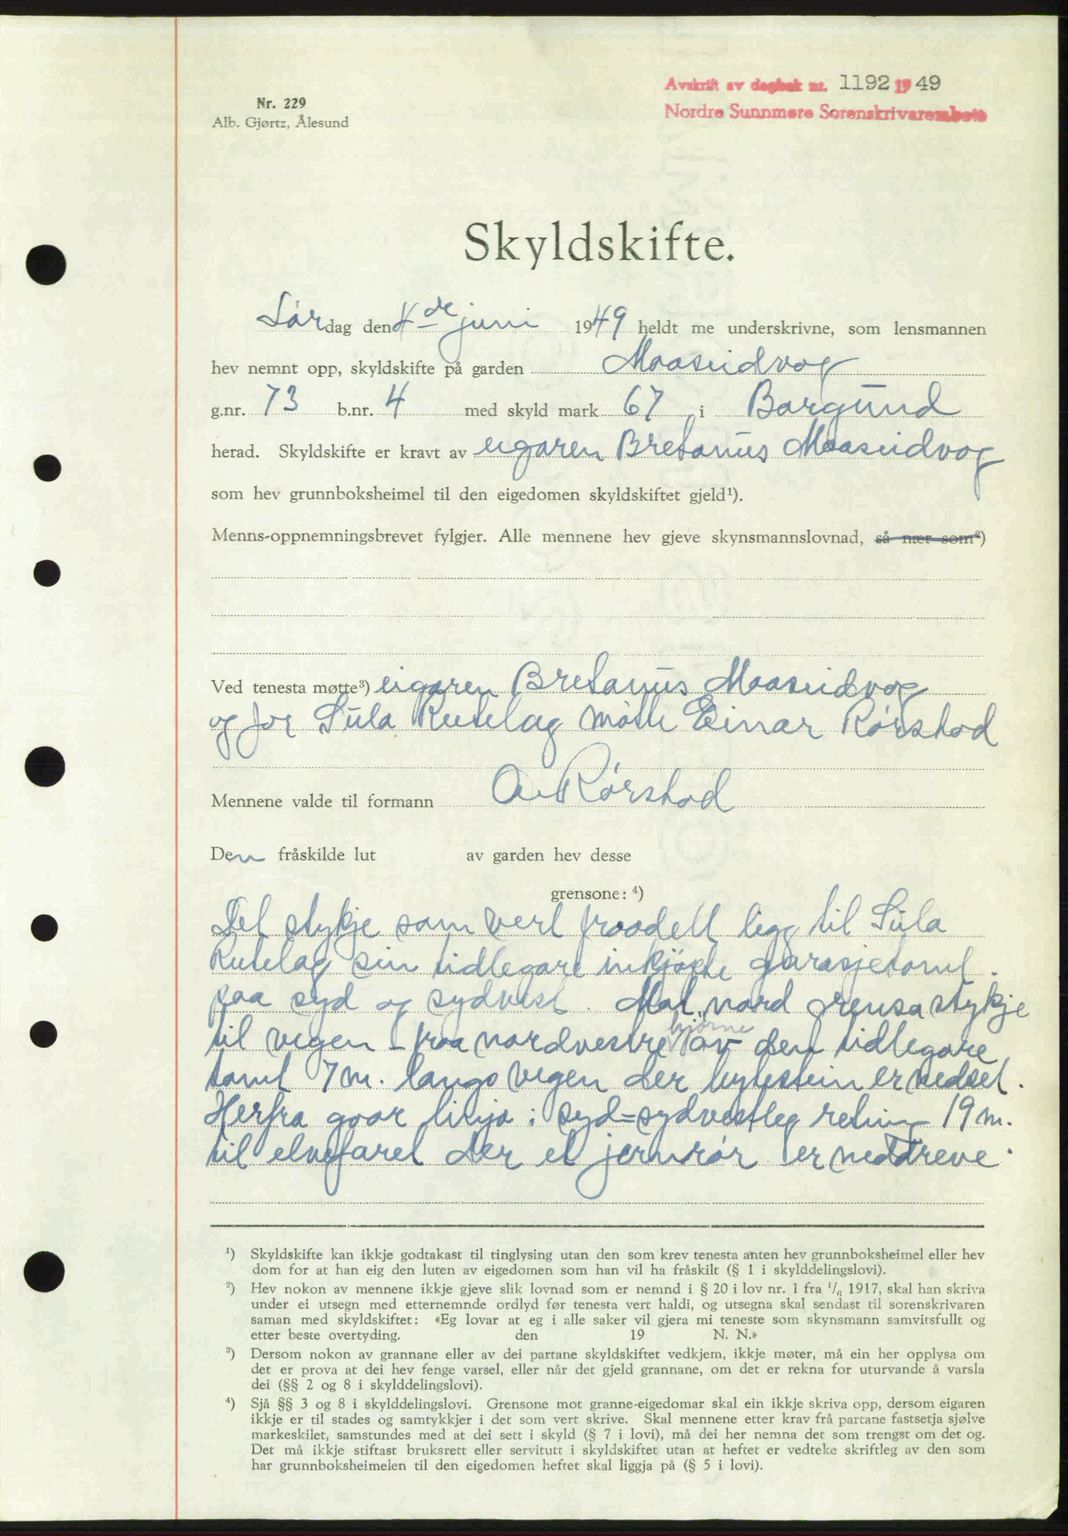 Avskrift av dagbok nr. 1192 1949
Nordre Sunnmøre Sorenskrivarembete
Nr. 229
Alb. Gjørtz, Ålesund
Skyldskifte.
Lørdag den 4de juni 1949 heldt me underskrivne, som lensmannen
hev nemnt opp, skyldskifte på garden Maaseidvog
g.nr. 73 b.nr. 4 med skyld mark 67 i Borgund
herad. Skyldskifte er kravt av eigaren Bretanus Maaseidvog
som hev grunnboksheimel til den eigedomen skyldskiftet gjeld¹).
Menns-oppnemningsbrevet fylgjer. Alle mennene hev gjeve skynsmannslovnad, så nær som²)
Ved tenesta møtte³) eigaren Bretanus Maaseidvog
og for Sula Rutelag møtte Einar Rørstad
Mennene valde til formann O. Rørstad
Den fråskilde lut av garden hev desse
grensone: ⁴)
Det stykje som vert fraadelt ligg til Sula
Rutelag sin tidlegare inkjøpte garasjetomt
paa syd og sydvest. Mot nord grensa stykje
til vegen - fraa nordvestre hjørne av den tidlegare
tomt 7 m. langs vegen der bytestein er nedset.
Herfra goar linja i syd=sydvestleg retning 19 m.
til elvefaret der et jernrør er neddreve.
¹) Skyldskifte kan ikkje godtakast til tinglysing utan den som krev tenesta anten hev grunnboksheimel eller hev
dom for at han eig den luten av eigedomen som han vil ha fråskilt (§ 1 i skylddelingslovi).
²) Hev nokon av mennene ikkje gjeve slik lovnad som er nemnd i § 20 i lov nr. 1 fra ¹/₆ 1917, skal han skriva
under ei utsegn med etternemnde ordlyd før tenesta vert haldi, og utsegna skal sendast til sorenskrivaren
saman med skyldskiftet: «Eg lovar at eg i alle saker vil gjera mi teneste som skynsmann samvitsfullt og
etter beste overtyding. den 19 N. N.»
³) Dersom nokon av grannane eller av dei partane skyldskiftet vedkjem, ikkje møter, må ein her opplysa om
det er prova at dei hev fenge varsel, eller når det gjeld grannane, om det er rekna for uturvande å varsla
dei (§§ 2 og 8 i skylddelingslovi).
⁴) Sjå §§ 3 og 8 i skylddelingslovi. Grensone mot granne-eigedomar skal ein ikkje skriva opp, dersom eigaren
ikkje er til stades og samtykkjer i det som vert skrive. Skal mennene etter krav frå partane fastsetja sjølve
markeskilet, samstundes med at dei sett i skyld (§ 7 i lovi), må dei her nemna det som trengst om det og.
Det må ikkje stiftast bruksrett eller servitutt i skyldskiftet utan at heftet er vedteke skriftleg av den som
har grunnboksheimelen til den eigedomen heftet skal liggja på (§ 5 i lovi).